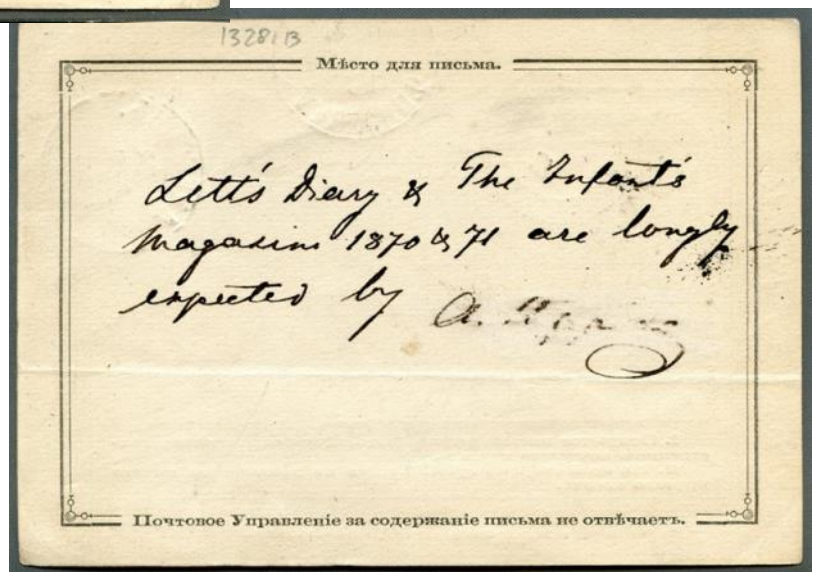 13281B
Мѣсто для письма.
Lett's Diary & The Infant's
Magazine 1870 & 71 are longly
expected by A.
Почтовое Управленіе за содержаніе письма не отвѣчаетъ.